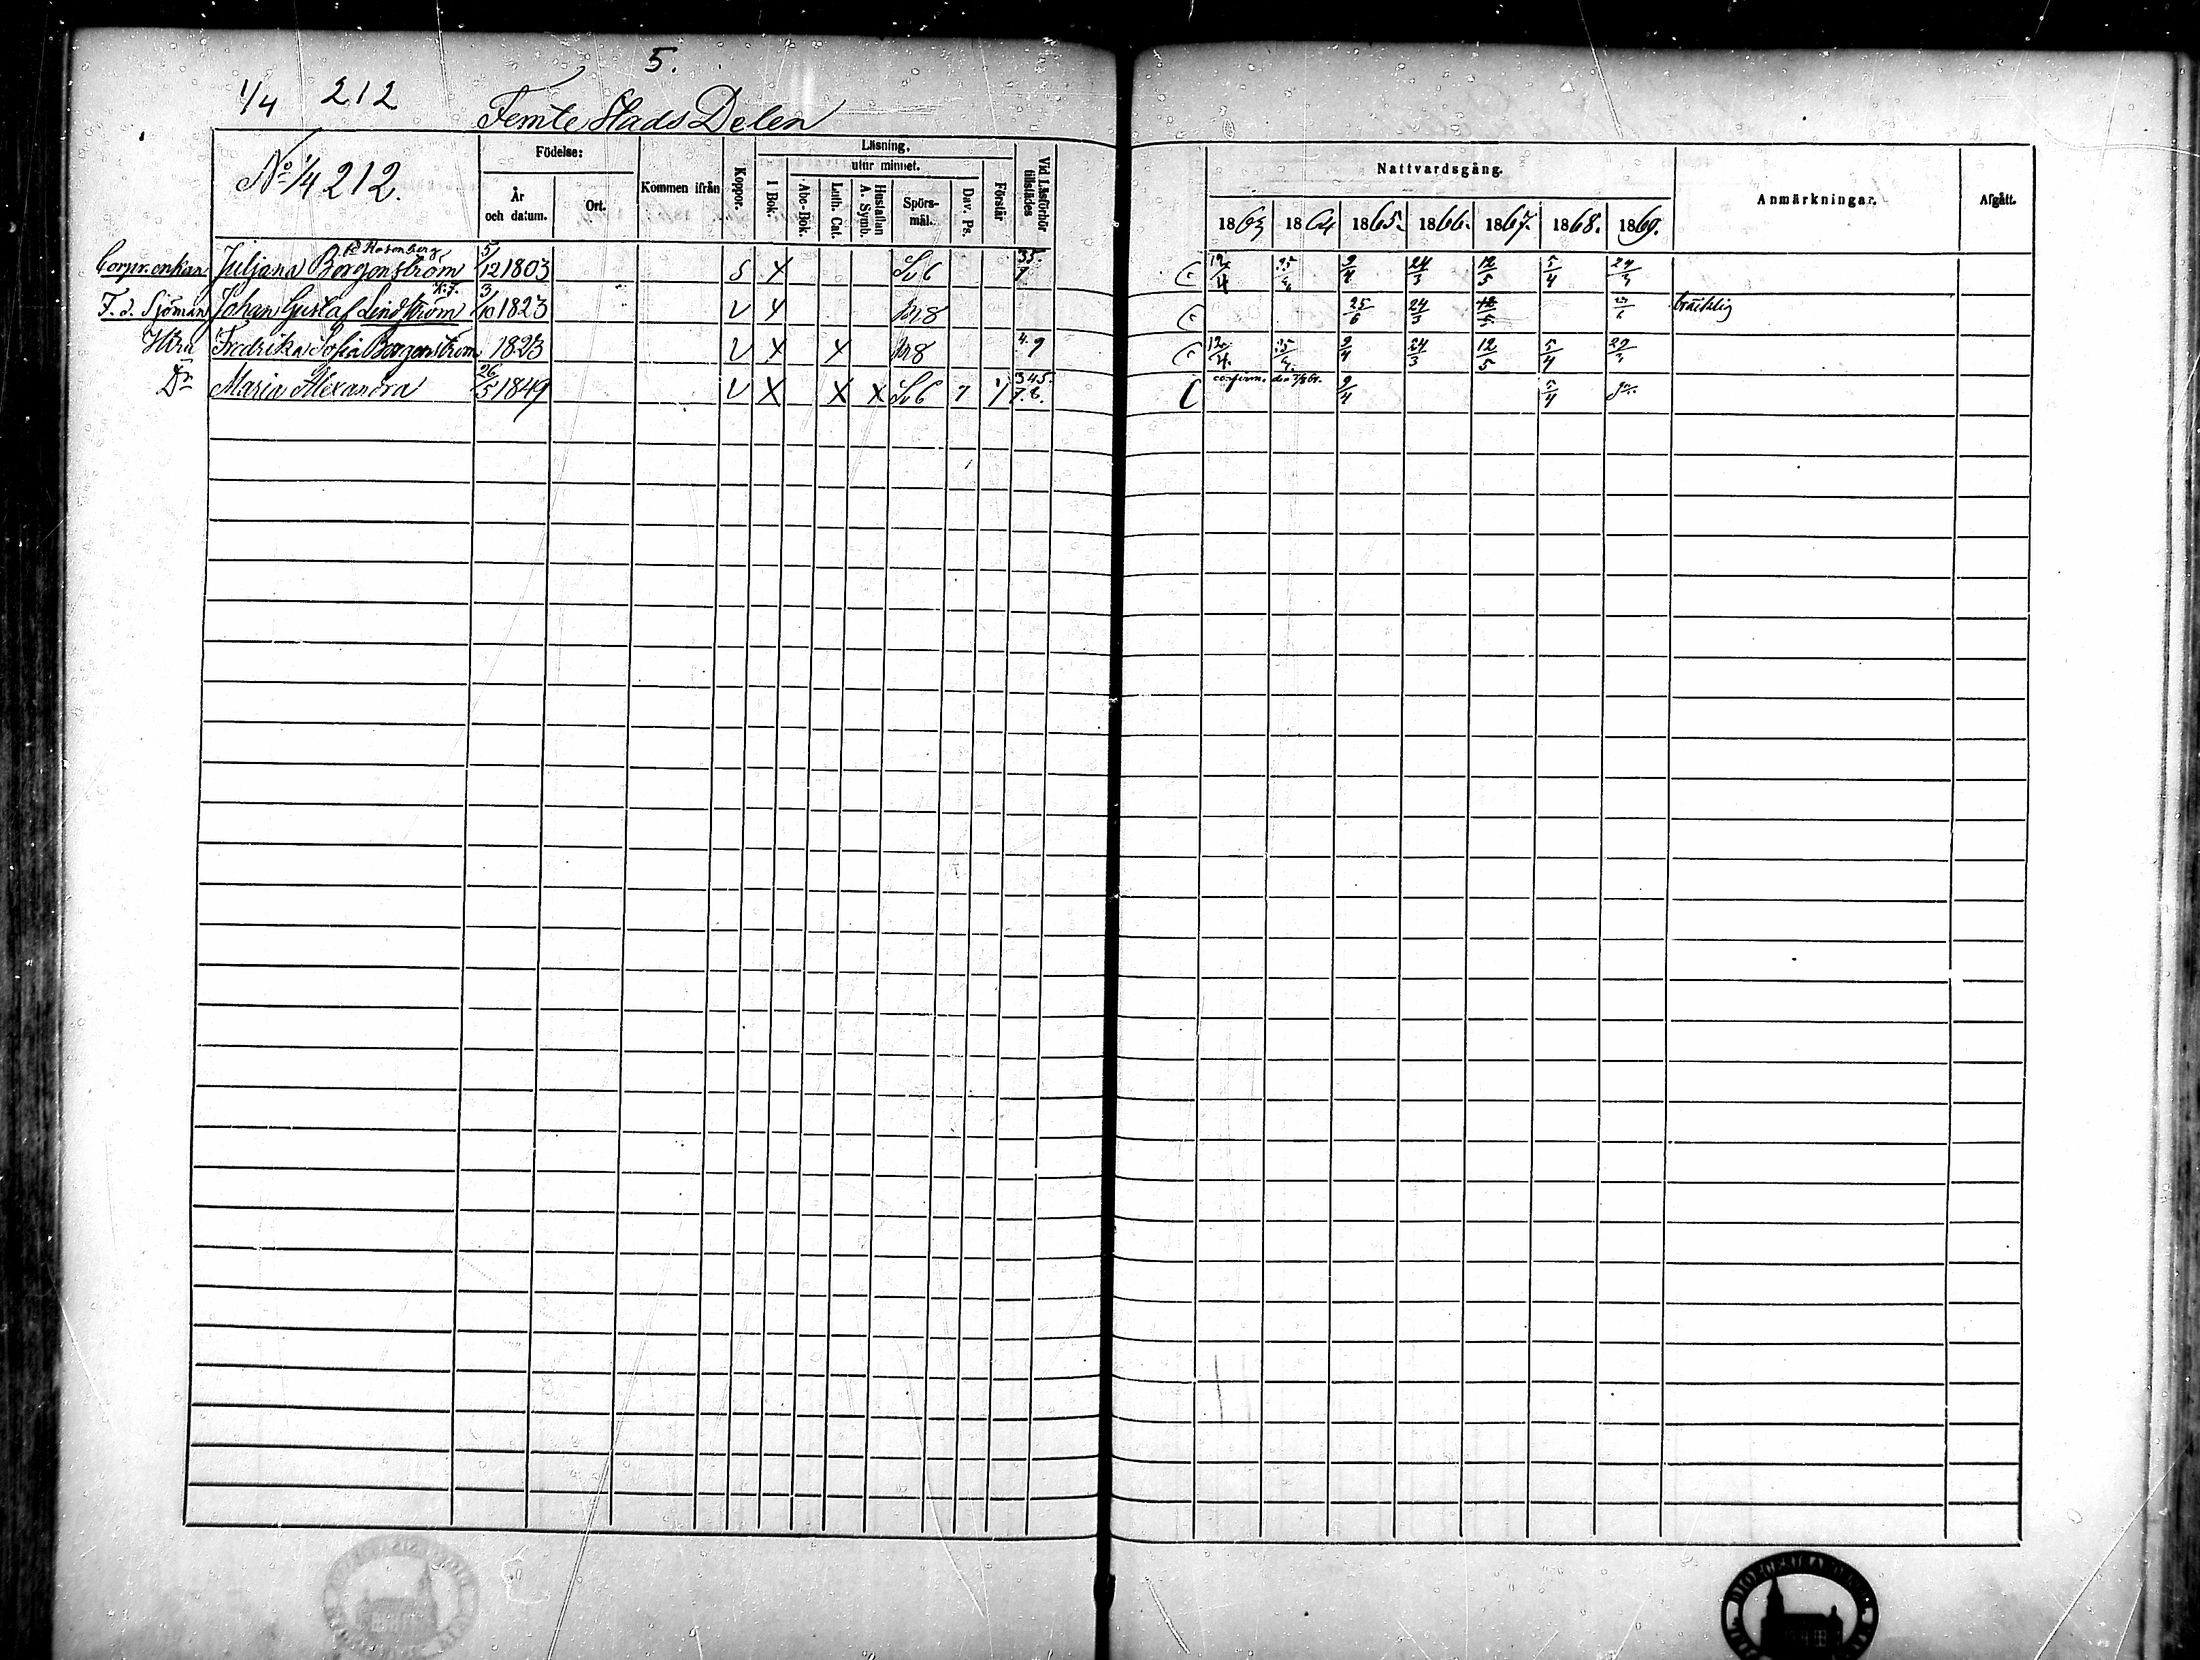 5.
1/4 212
Femte Stads Delen
No 1/4 212.
Födelse:
År och datum.
Ort.
Kommen ifrån
Koppor.
Läsning,
I Bok.
utur minnet.
Abc-Bok.
Luth. Cat.
Hustaflan A. Symb.
Spörs-mål.
Dav. Ps.
Förstår
Vid Läsförhör tillstädes
Nattvardsgång.
1863 1864 1865. 1866. 1867. 1868. 1869.
Anmärkningar.
Afgått.
fd Rosenberg
Corpr. enkan Juljana Borgenström 5/12 1803 S X Sv 6 35. 7 12/4 9/4 24/3 12/5 5/4 29/3
F. d. Sjöman Johan Gustaf Lindström 3/10 1823 V X 8 25/6 24/3 12/5 bräcklig
Hru Fredrika Sofia Borgenström 1823 V X X 8 4. 9 12/4 9/4 24/3 12/5 5/4 29/3
Dr Maria Alexandra 26/5 1849 V X X X Sv 6 7 345. 7. 8. confirm. den 9/4 5/4